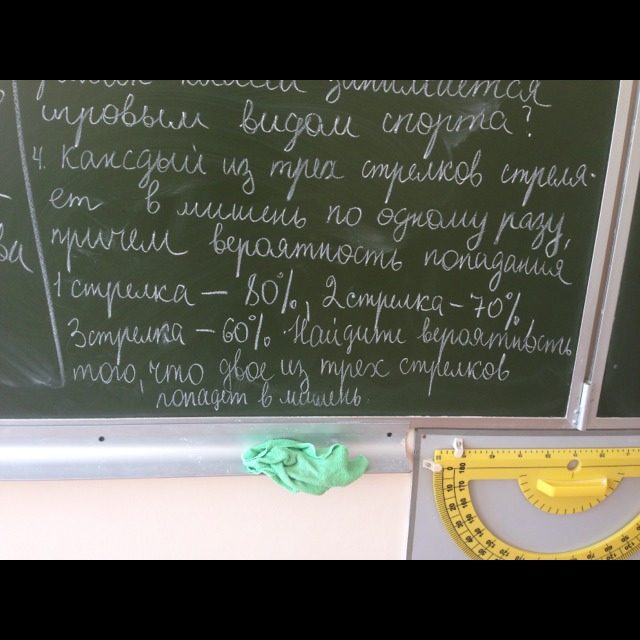 занимается
игровым видом спорта?
4. Каждый из трех стрелков стреля-
ет в мишень по одному разу,
причем вероятность попадания
1 стрелка – 80%, 2 стрелка – 70%
3 стрелка – 60%. Найдите вероятность
того, что двое из трех стрелков
попадет в мишень.